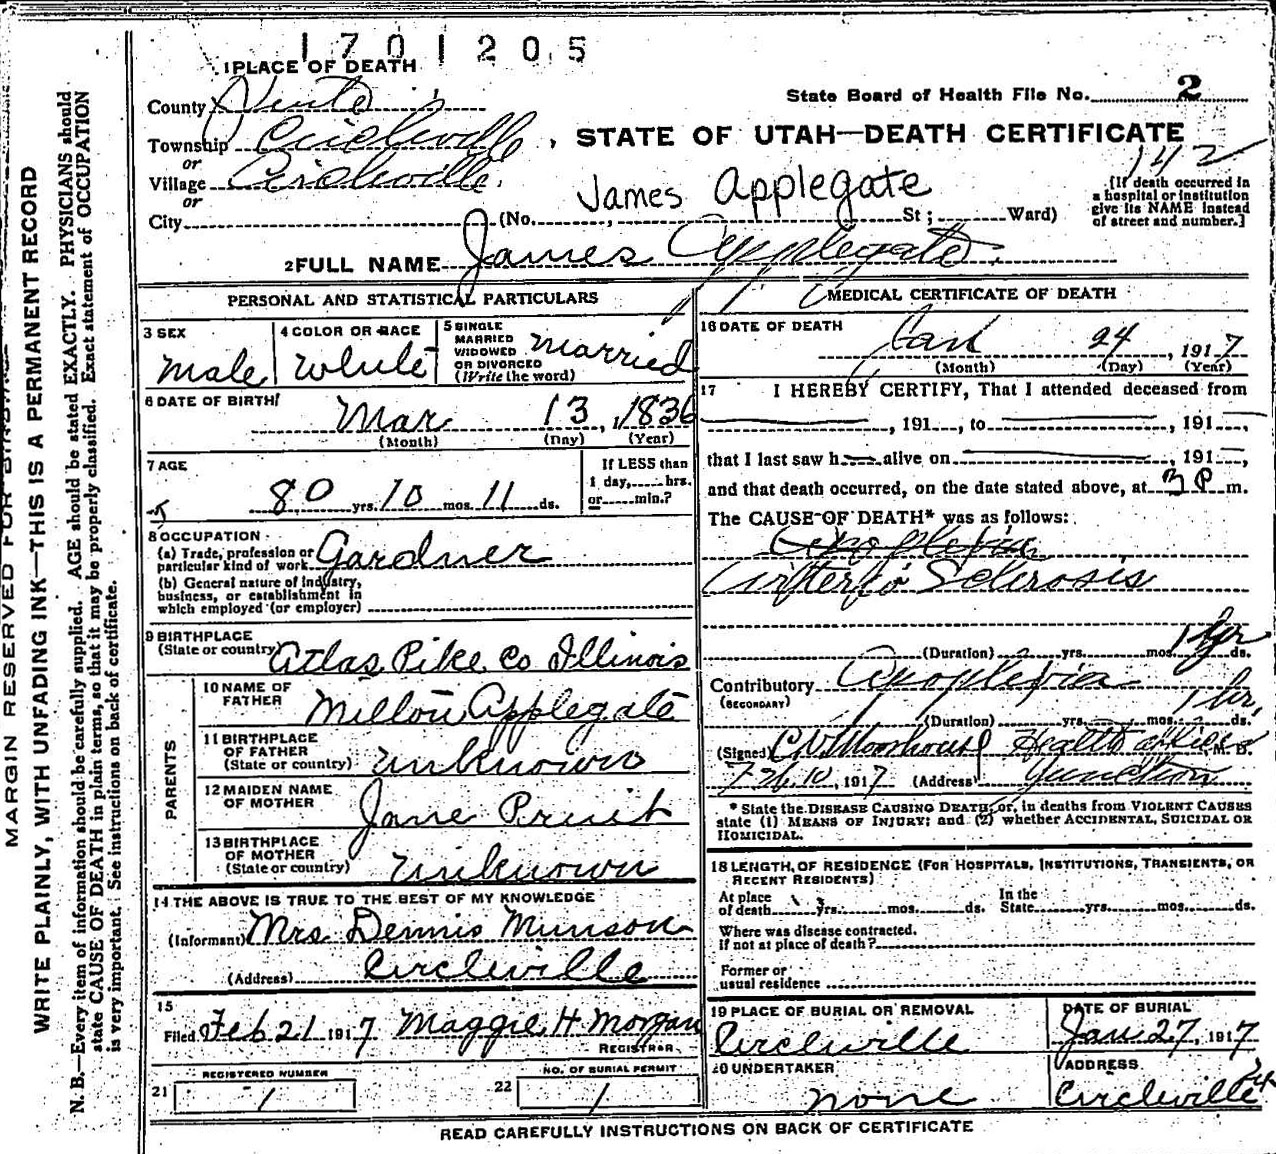 1701205
1 PLACE OF DEATH
County
State Board of Health File No. 2
Township Circleville, STATE OF UTAH—DEATH CERTIFICATE
or
Village Circleville
142
or
James Applegate
[If death occurred in
a hospital or institution
give its NAME instead
of street and number.]
City (No. , St; Ward)
2 FULL NAME James Applegate.
PERSONAL AND STATISTICAL PARTICULARS
3 SEX
Male
4 COLOR OR RACE
White
5 SINGLE
MARRIED
WIDOWED
OR DIVORCED
(Write the word)
Married
6 DATE OF BIRTH
Mar 13, 1836
(Month) (Day) (Year)
7 AGE
80 yrs. 10 mos. 11 ds.
If LESS than
1 day, hrs.
or min.?
8 OCCUPATION
(a) Trade, profession or
particular kind of work Gardner
(b) General nature of industry,
business, or establishment in
which employed (or employer)
9 BIRTHPLACE
(State or country) Atlas Pike Co Illinois
PARENTS
10 NAME OF
FATHER Milton Applegate
11 BIRTHPLACE
OF FATHER
(State or country) Unknown
12 MAIDEN NAME
OF MOTHER Jane Pruit
13 BIRTHPLACE
OF MOTHER
(State or country) Unknown
14 THE ABOVE IS TRUE TO THE BEST OF MY KNOWLEDGE
(Informant) Mrs. Dennis Munson
(Address) Circleville
15
Filed Feb 21 1917 Maggie H Morgan
REGISTRAR
21 REGISTERED NUMBER
1
22 NO. OF BURIAL PERMIT
1
MEDICAL CERTIFICATE OF DEATH
16 DATE OF DEATH
Jan 24, 1917
(Month) (Day) (Year)
17 I HEREBY CERTIFY, That I attended deceased from
, 191 , to , 191 ,
that I last saw h alive on , 191 ,
and that death occurred, on the date stated above, at 3 P m.
The CAUSE OF DEATH* was as follows:
Sclerosis
(Duration) yrs. mos. ds.
Contributory Apoplexia
(SECONDARY)
1 hr,
(Duration) yrs. mos. ds.
(Signed) Health Officer M. D.
1917 (Address) Junction
* State the DISEASE CAUSING DEATH, or, in deaths from VIOLENT CAUSES
state (1) MEANS OF INJURY; and (2) whether ACCIDENTAL, SUICIDAL OR
HOMICIDAL.
18 LENGTH OF RESIDENCE (FOR HOSPITALS, INSTITUTIONS, TRANSIENTS, OR
RECENT RESIDENTS)
At place
of death yrs. mos. ds.
In the
State yrs. mos. ds.
Where was disease contracted.
if not at place of death?
Former or
usual residence
19 PLACE OF BURIAL OR REMOVAL
Circleville
DATE OF BURIAL
Jan 27, 1917
20 UNDERTAKER
none
ADDRESS
Circleville
READ CAREFULLY INSTRUCTIONS ON BACK OF CERTIFICATE
MARGIN RESERVED FOR BINDING
WRITE PLAINLY, WITH UNFADING INK—THIS IS A PERMANENT RECORD
N. B.—Every item of information should be carefully supplied. AGE should be stated EXACTLY. PHYSICIANS should
state CAUSE OF DEATH in plain terms, so that it may be properly classified. Exact statement of OCCUPATION
is very important. See instructions on back of certificate.